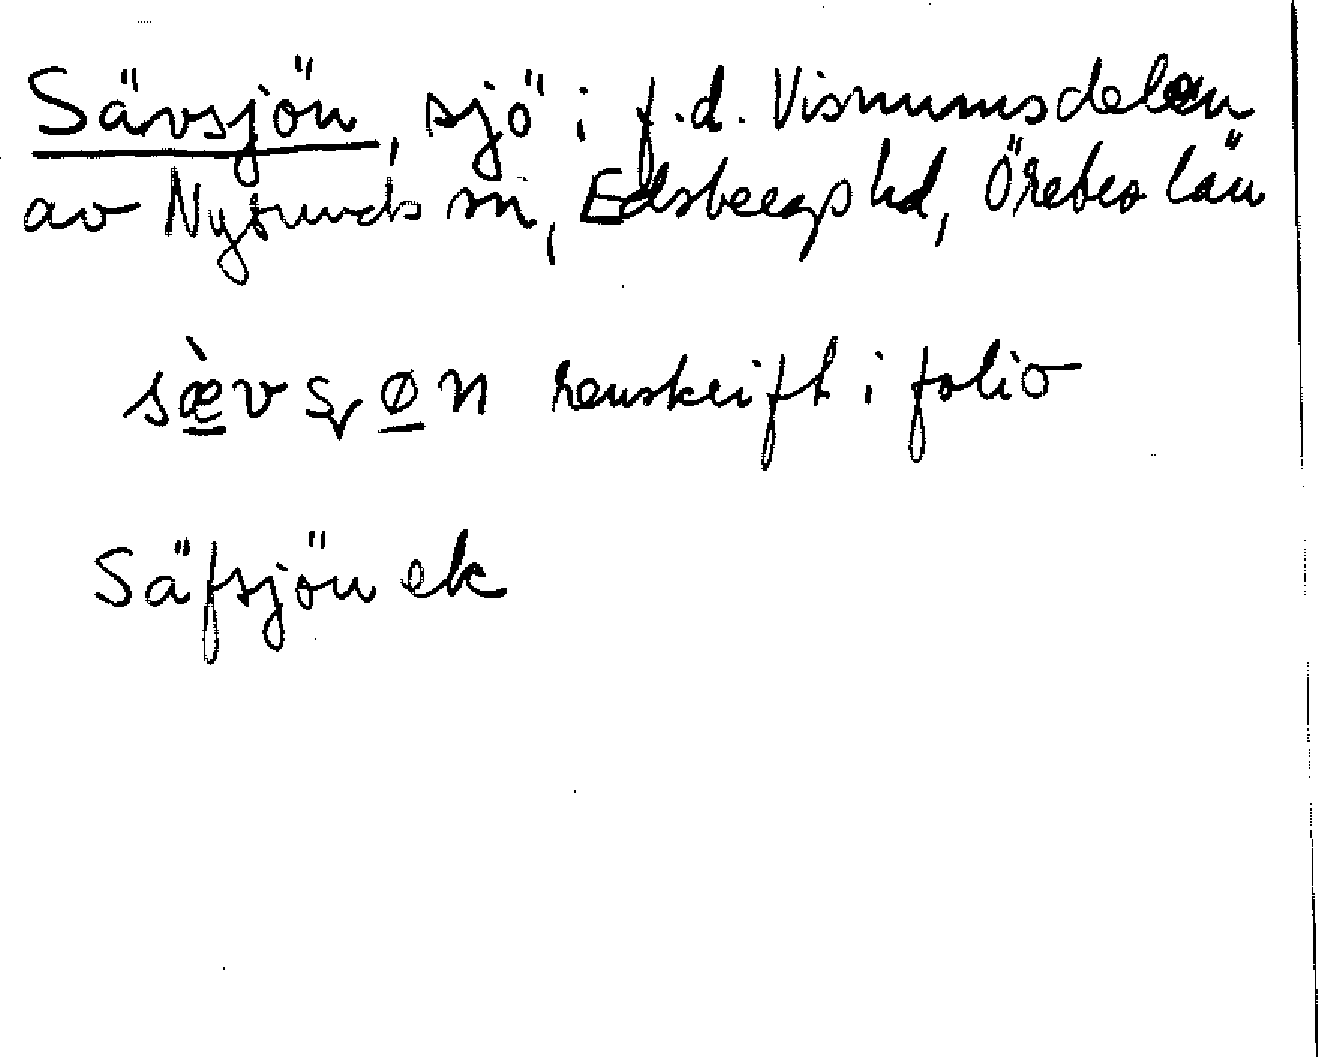 Sävsjön, sjö i f.d. Visnumsdelen
av Nysunds sn, Edsbergs hd, Örebro län
renskrift i folio
Säfsjön ek